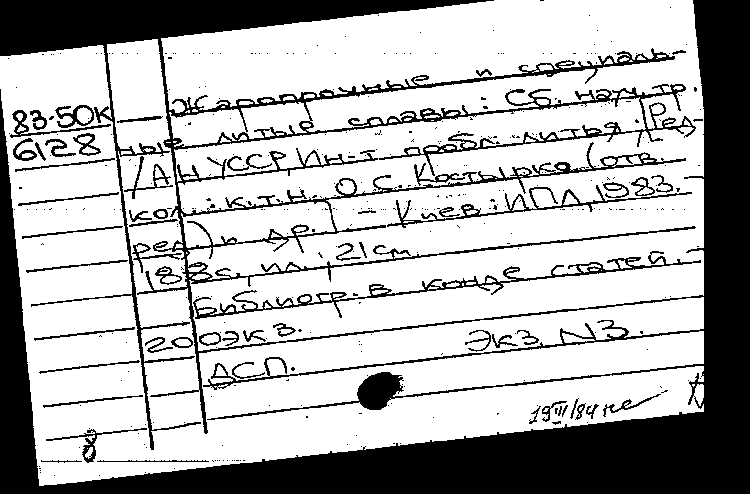 83-50К
6128
Жаропрочные и специаль-
ные литые сплавы: Сб. науч. тр.
/АН УССР, Ин-т пробл. литья; [Ред-
кол.: к.т.н. О.С. Костырко (отв.
ред.) и др.] - Киев: ИПЛ, 1983. -
188с., ил.; 21см.
Библиогр. в конце статей. -
200экз.
Экз. N3.
ДСП.
19 III/84
8